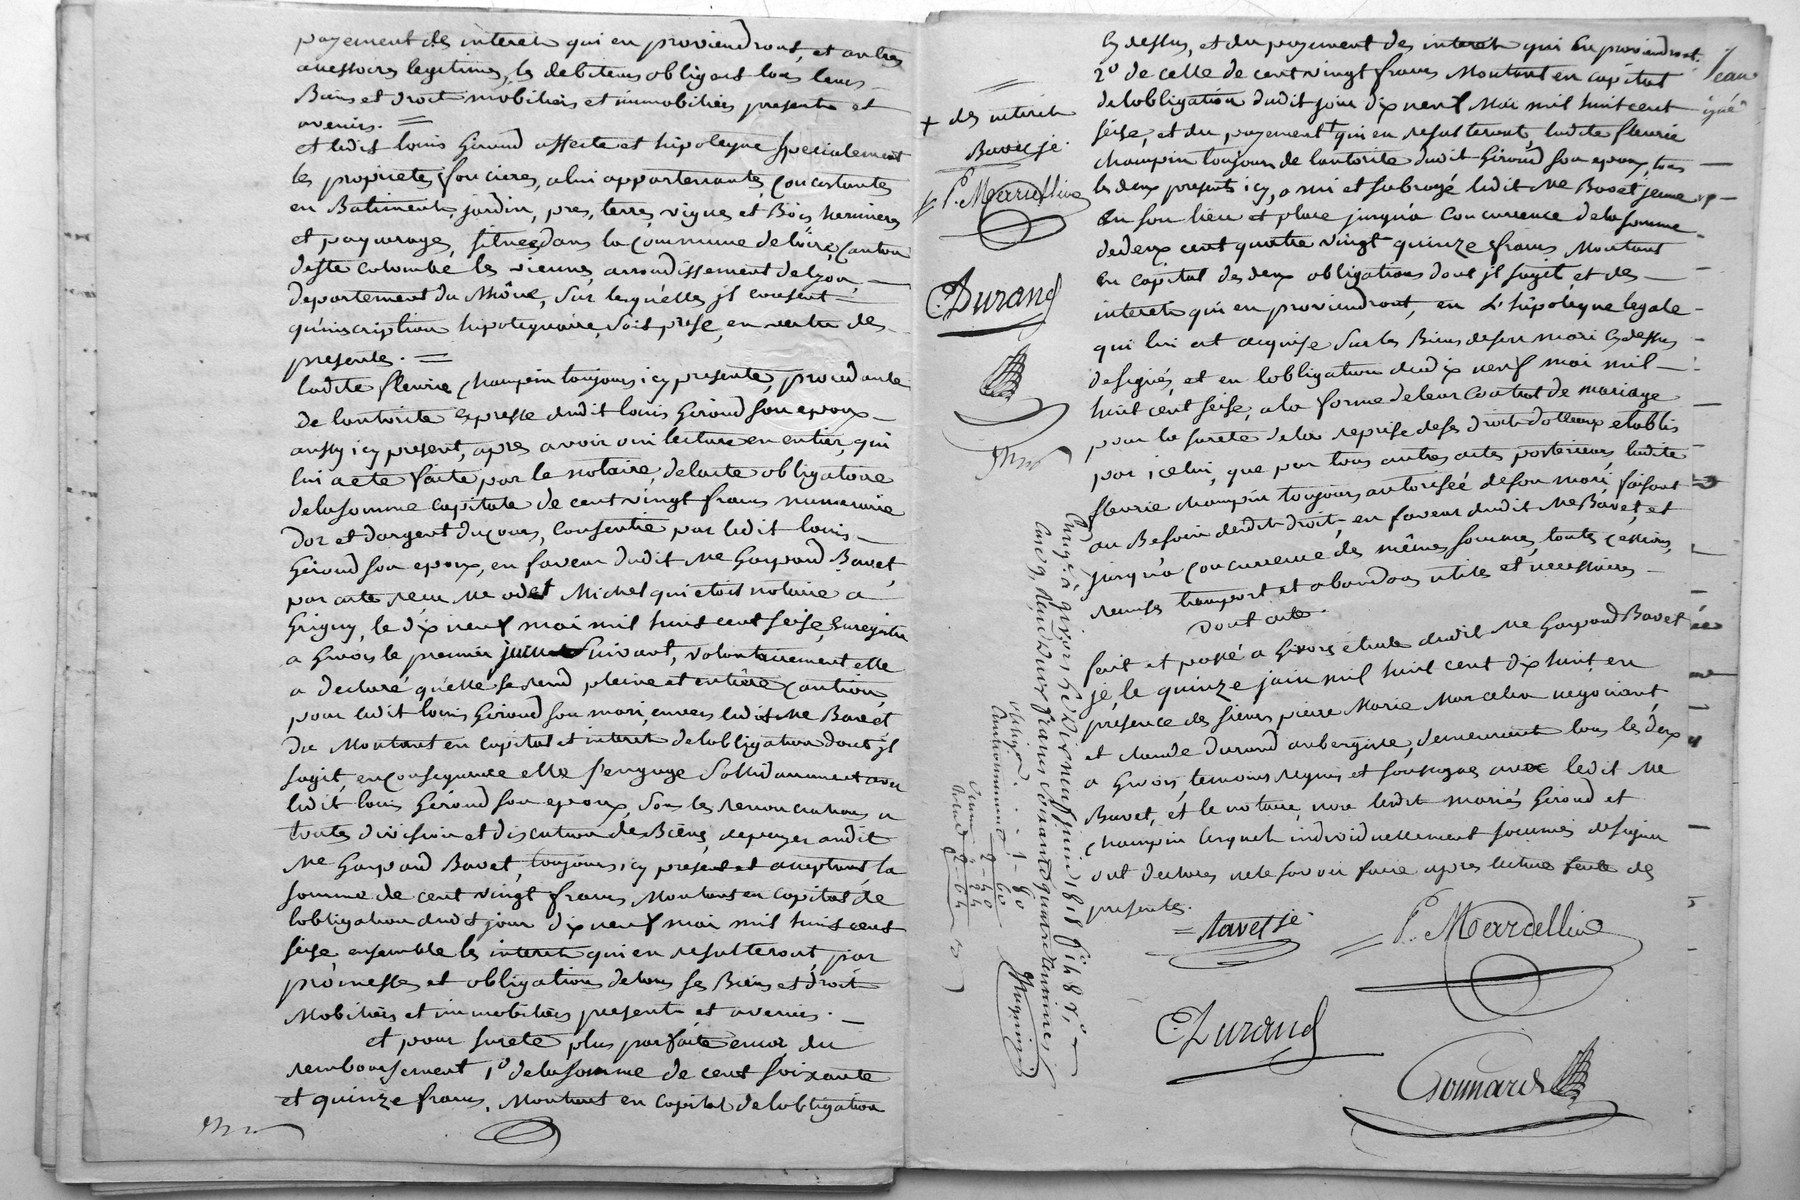 payement des interets qui en proviendront, et autres
accessoires legitimes, les debiteurs obligent tous leurs
Biens et droits mobiliers et immobiliers presents et
avenirs. =
et ledit louis Giroud affecte et hipoteque specialement
les proprietés foncieres, a lui appartenantes, consistantes
en Batiments, jardin, prés, terres, vignes et Bois
et paquerages, situés dans la Commune de loire, canton
de ste colombe les vienne, arrondissement de Lyon, —
departement du Rhône, Sur lesquelles jl consent
qu'inscription hipotequaire, soit prise, en vertu des
presentes. =
ladite fleurie Champin toujours icy presente, procedante
de l'autorité expresse dudit louis Giroud son epoux —
aussy icy present, apres avoir oui lecture en entier, qui
lui a eté faite par le notaire, de l'acte obligatoire
de la somme capitale de cent vingt francs numeraire
d'or et d'argent du cours, Consentie par ledit louis —
Giroud son epoux, en faveur dudit Me Gaspard Bavet,
par acte recu Me odet Michel qui etoit notaire a
Grigny, le dix neuf mai mil huit cent seise, Enregistré
a Givors le premier juin Suivant, volontairement elle
a declaré qu'elle se rend pleine et entière caution,
pour ledit louis Giroud son mari, envers ledit Me Bavet
du Montant en capital et interet de l'obligation dont jl
sagit, en consequence elle s'engage Sollidairement avec
ledit louis Giroud son epoux, sous les renonciations a
toutes division et discution de Biens, de payer audit
Me Gaspard Bavet, toujours icy present et acceptant, la
somme de cent vingt francs, Montant en capital de
l'obligation dudit jour dix neuf mai mil huit cent
seise ensemble les interets qui en resulteront, par
promesses et obligations de tous ses Biens et droits
Mobiliers et immobiliers presents et avenirs. —
et pour sureté plus parfaite encor du
remboursement, 1º de la somme de cent soixante
et quinze francs, Montant en capital de l'obligation
cy dessus, et du payement des interets qui En proviendront.
2º de celle de cent vingt francs Montant en capital
de l'obligation dudit jour dix neuf Mai mil huit cent
seise, et du payement + qui en resulteront, ladite fleurie
champin toujours de l'autorité dudit Giroud son epoux, tous
les deux presents icy, a mi et subrogé ledit Me Bavet jeune
En son lieu et place jusqu'a Concurrence de la somme
de deux cent quatre vingt quinze francs Montant
en capital des deux obligations dont jl sagit, et des —
interets qui en proviendront, en L'hipoteque legale —
qui lui est acquise Sur les Biens de son mari cy dessus
designés, et en l'obligation du dix neuf mai mil —
huit cent seise, a la forme de leur Contrat de mariage
pour la sureté de la reprise de ses droits dotteaux etablis
par icelui, que par tous autres actes posterieurs, ladite
fleurie champin toujours autorisée de son mari, faisant
au Besoin dudit droit, en faveur dudit Me Bavet, et
jusqu'a concurrence des mêmes sommes, toutes cessions,
remises transport et abandons utiles et necessaires —
Dont acte.
fait et passé a Givors etude dudit Me Gaspard Bavet
je, le quinze juin mil huit cent dix huit, en
presence des sieurs pierre Marie Marcelin negociant,
et claude Durand aubergiste, demeurant tous les deux
a Givors, temoins requis et soussignés avec ledit Me
Bavet, et le notaire, non ledit mariés Giroud et
champin lesquels individuellement sommés de signer
ont declarés ne le savoir faire apres lecture faite des
presentes.
= Bavet je
P. Mardellin
C. Durand
Gonnard
+ des interets
Bavet je.
P. Mardellin
C. Durand
Enregé à givors le dix neuf juin 1818 fo 148 Vo
Jean